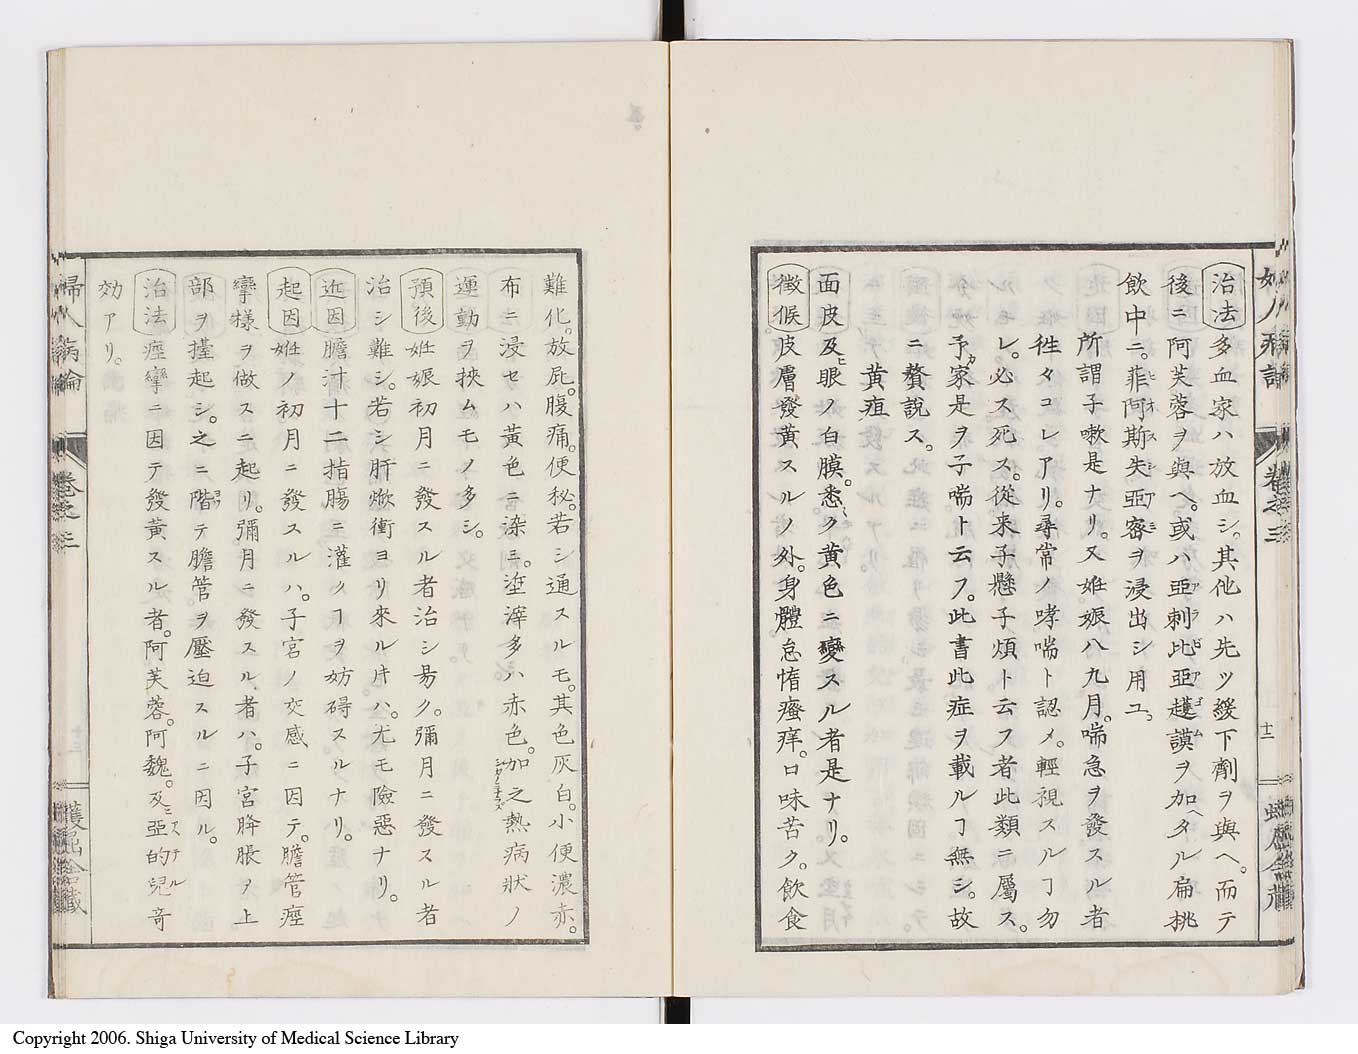 治法多血家ハ放血シ。其他ハ先ツ緩下劑ヲ與ヘ。而テ
後ニ阿芙蓉ヲ與ヘ。或ハ亞刺比亞護謨ヲ加ヘタル扁桃
飲中ニ。菲阿斯失亞密ヲ浸出シ用ユ。
所謂子嗽是ナリ。又姙娠八九月。喘急ヲ發スル者
徃々コレアリ。尋常ノ哮喘ト認メ。輕視スルヿ勿
レ。必ス死ス。從来子懸子煩ト云フ者此類ニ屬ス。
予家是ヲ子喘ト云フ。此書此症ヲ載ルヿ無シ。故
ニ贅説ス。
黄疸
面皮及ヒ眼ノ白膜。悉ク黄色ニ變スル者是ナリ。
徴候 皮層發黄スルノ外。身體怠惰瘙痒。口味苦ク。飲食
十二
難化。放屁。腹痛。便秘。若シ通スルモ。其色灰白。小便濃赤。
布ニ浸セハ黄色ニ染ミ。滓多ハ赤色。加之熱病状ノ
運動ヲ挾ムモノ多シ。
預後 姙娠初月ニ發スル者治シ易ク。彌月ニ發スル者
治シ難シ。若シ肝焮衝ヨリ來ル片ハ。尤モ險惡ナリ。
近因 膽汁十二指腸ニ灌クヿヲ妨碍スルナリ。
起因 姙ノ初月ニ發スルハ。子宮ノ交感ニ因テ。膽管痙
攣様ヲ做スニ起リ。彌月ニ發スル者ハ。子宮膨脹ヲ上
部ヲ擡起シ。之ニ階テ膽管ヲ壓迫スルニ因ル。
治法 痙攣ニ因テ發黄スル者。阿芙蓉。阿魏。及亞的兒奇
効アリ。
婦人病論 卷之三
蠖屈舎藏
Copyright 2006. Shiga University of Medical Science Library